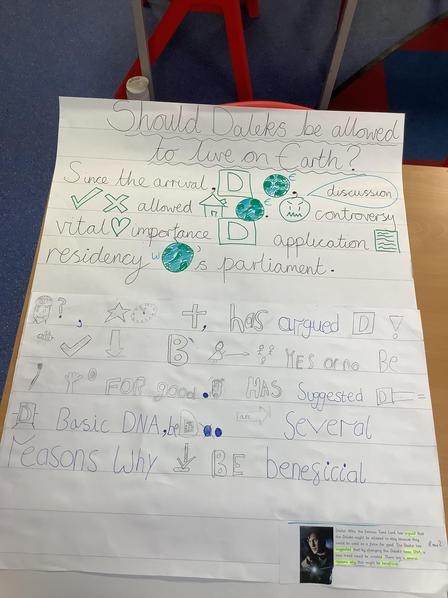 Should Daleks be allowed
to live on Earth?
Since the arrival, D . discussion
allowed . controversy
vital importance D application
residency W 's parliament.
?, +, has argued D !
B YES or no Be
FOR good. HAS Suggested D =
D Basic DNA, be Several
reasons Why BE benefícial
Doctor Who, the famous Time Lord, has argued that
the Daleks might be allowed to stay because they
could be used as a force for good. The Doctor has
suggested that by changing the Daleks basic DNA, a
new breed could be created. There are several
reasons why this might be beneficial.